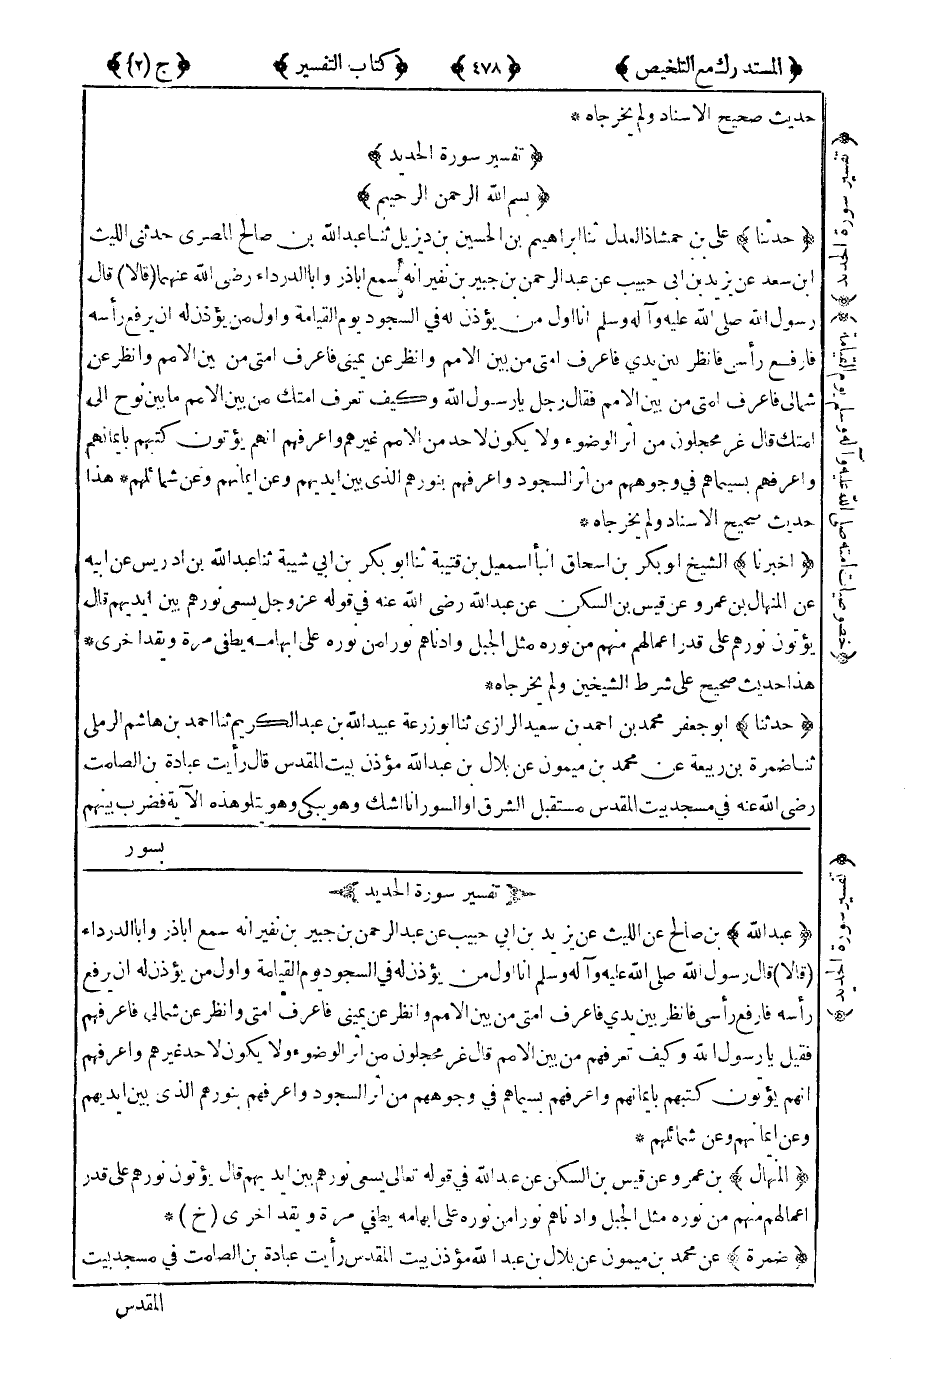 ﴿ المستدرك مع التلخيص ﴾ ﴿ ٤٧٨ ﴾ ﴿ كتاب التفسير ﴾ ﴿ ج (٢) ﴾
حديث صحيح الاسناد ولم يخرجاه *
﴿ تفسير سورة الحديد ﴾
﴿ بسم الله الرحمن الرحيم ﴾
﴿ حدثنا ﴾ علي بن حمشاذ العدل ثنا ابراهيم بن الحسين بن ديزيل ثنا عبدالله بن صالح المصرى حدثنى الليث
ابن سعد عن يزيد بن ابى حبيب عن عبد الرحمن بن جبير بن نفير انه سمع اباذر و ابا الدرداء رضى الله عنهما (قالا) قال
رسول الله صلى الله عليه وآله وسلم انا اول من يؤذن له في السجود يوم القيامة و اول من يؤذن له ان يرفع رأسه
فارفع رأسى فانظر بين يدي فاعرف امتى من بين الامم وانظر عن يمينى فاعرف امتى من بين الامم وانظر عن
شمالى فاعرف امتى من بين الامم فقال رجل يا رسول الله وكيف تعرف امتك من بين الامم ما بين نوح الى
امتك قال غر محجلون من اثر الوضوء ولا يكون لاحد من الامم غيرهم واعرفهم انهم يؤتون كتبهم بايمانهم
واعرفهم بسيماهم في وجوههم من اثر السجود واعرفهم بنورهم الذى بين ايديهم وعن ايمانهم وعن شمائلهم * هذا
حديث صحيح الاسناد ولم يخرجاه *
﴿ اخبرنا ﴾ الشيخ ابو بكر بن اسحاق انبأ اسمعيل بن قتيبة ثنا ابو بكر بن ابي شيبة ثنا عبدالله بن ادريس عن ابيه
عن المنهال بن عمرو عن قيس بن السكن عن عبدالله رضى الله عنه في قوله عز وجل يسعى نورهم بين ايديهم قال
يؤتون نورهم على قدر اعمالهم منهم من نوره مثل الجبل وادناهم نورا من نوره على ابهامه يطفى مرة و يقد اخرى *
هذا حديث صحيح على شرط الشيخين ولم يخرجاه *
﴿ حدثنا ﴾ ابو جعفر محمد بن احمد بن سعيد الرازى ثنا ابو زرعة عبيد الله بن عبد الكريم ثنا احمد بن هاشم الرملى
ثنا ضمرة بن ربيعة عن محمد بن ميمون عن بلال بن عبدالله مؤذن بيت المقدس قال رأيت عبادة بن الصامت
رضى الله عنه في مسجد بيت المقدس مستقبل الشرق او السور انا اشك وهو يبكى وهو يتلو هذه الآية فضرب بينهم
بسور
تفسير سورة الحديد
﴿ عبدالله ﴾ بن صالح عن الليث عن يزيد بن ابي حبيب عن عبد الرحمن بن جبير بن نفير انه سمع اباذر و ابا الدرداء
(قالا) قال رسول الله صلى الله عليه وآله وسلم انا اول من يؤذن له في السجود يوم القيامة و اول من يؤذن له ان يرفع
رأسه فارفع رأسى فانظر بين يدي فاعرف امتى من بين الامم وانظر عن يمينى فاعرف امتى وانظر عن شمالى فاعرفهم
فقيل يا رسول الله وكيف تعرفهم من بين الامم قال غر محجلون من اثر الوضوء ولا يكون لاحد غيرهم واعرفهم
انهم يؤتون كتبهم بايمانهم واعرفهم بسيماهم في وجوههم من اثر السجود واعرفهم بنورهم الذى بين ايديهم
وعن ايمانهم وعن شمائلهم *
﴿ المنهال ﴾ بن عمرو عن قيس بن السكن عن عبد الله في قوله تعالى يسعى نورهم بين ايديهم قال يؤتون نورهم على قدر
اعمالهم منهم من نوره مثل الجبل وادناهم نورا من نوره على ابهامه يطفي مرة و يقد اخرى (خ) *
﴿ ضمرة ﴾ عن محمد بن ميمون عن بلال بن عبد الله مؤذن بيت المقدس رأيت عبادة بن الصامت في مسجد بيت
المقدس
﴿ تفسير سورة الحديد ﴾
﴿ خصوصيات امته صلى الله عليه وآله وسلم يوم القيامة ﴾
﴿ تفسير سورة الحديد ﴾